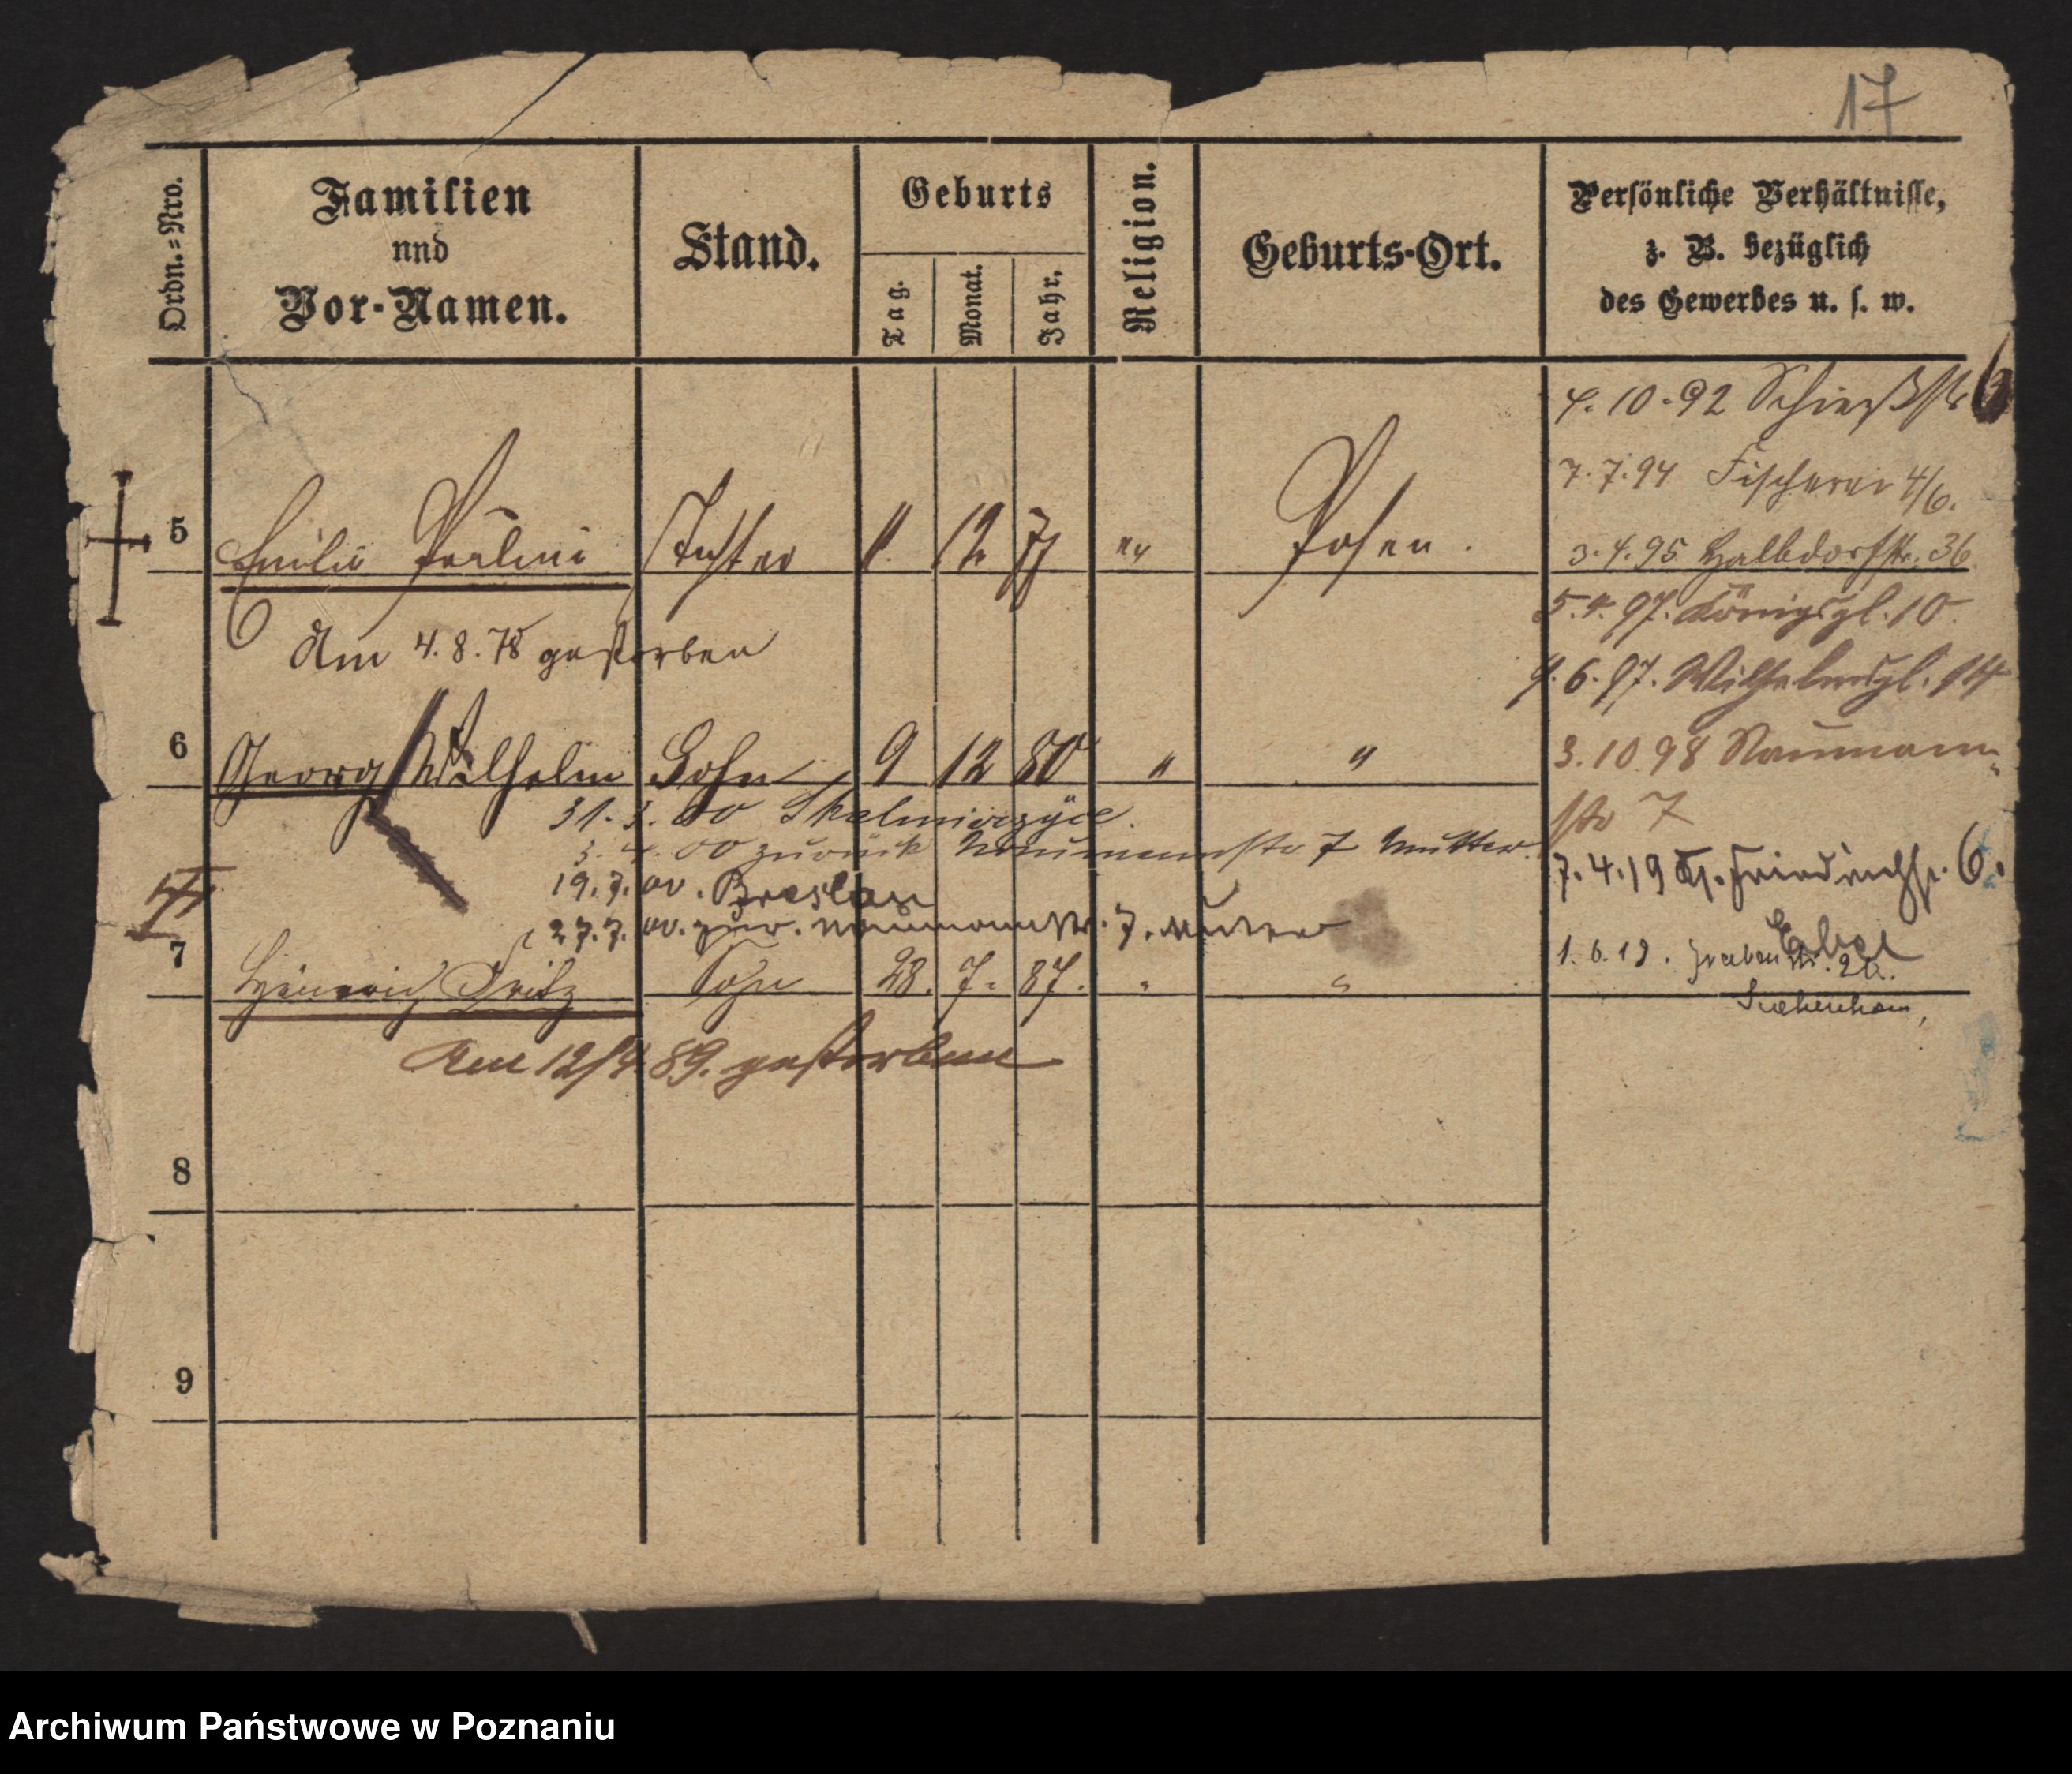 17
Ordn.=Nro.
Familien
und
Vor-Namen.
Stand.
Geburts
Tag.
Monat.
Jahr.
Religion.
Geburts-Ort.
Persönliche Verhältnisse,
z. B. bezüglich
des Gewerbes u. s. w.
4.10.92 Schießstr 6
7.7.94 Fischerei 4/6.
5 Emilie Pauline Tochter 1. 12 77 " Posen.
3.4.95 Halbdorfstr. 36
5.4.97. Königspl. 10.
Am 4.8.78 gestorben
9.6.97. Wilhelmspl. 14
6 Georg Wilhelm Sohn 9 12 80 " "
3.10.98 Naumann-
str 7
31.3.00 Skalmierzyce.
3.4.00 zurück Naumannstr 7 Mutter.
19.7.00. Breslau
27.7.00. zur. Naumannstr. 7. Mutter
7.4.19 Friedrichstr. 6.
7 Heinrich Fritz Sohn 28. 7. 87. " "
1.6.19. Grabenstr. 26.
Am 12/4 89. gestorben
8
9
Archiwum Państwowe w Poznaniu